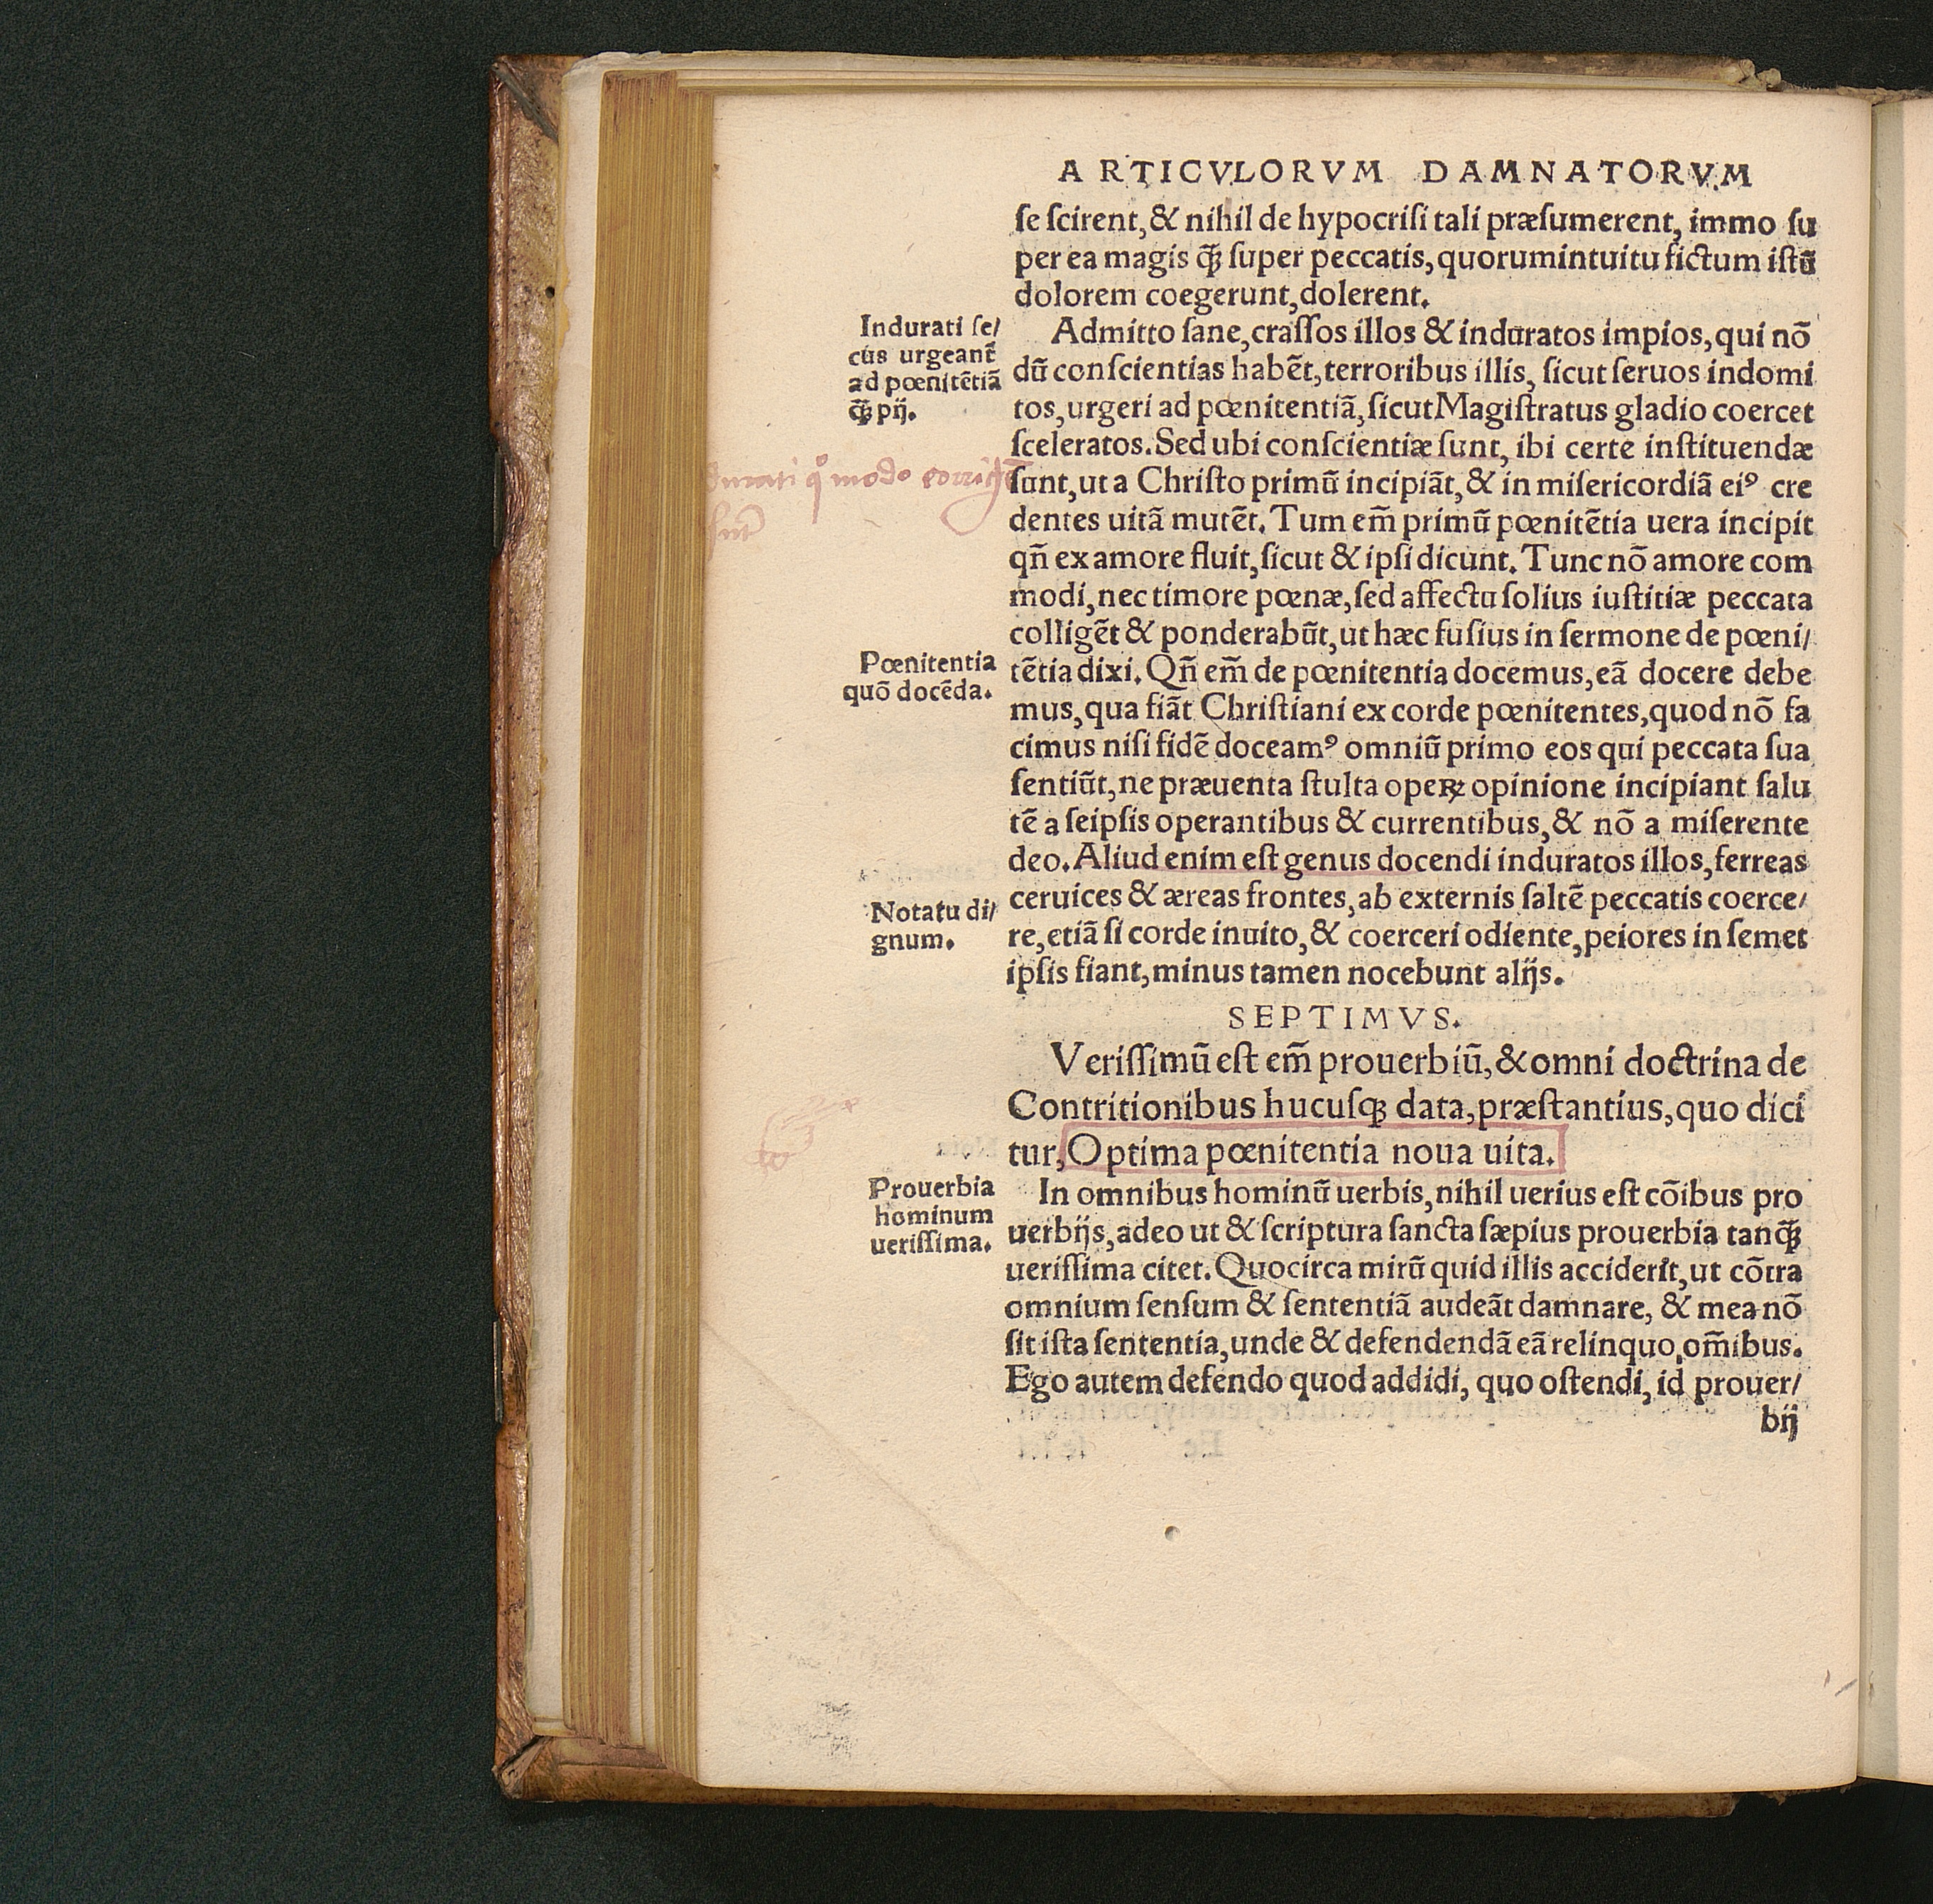 ARTICVLORVM DAMNATORVM
se scirent, & nihil de hypocrisi tali præsumerent, immo su
per ea magis q̃ꝫ super peccatis, quorumintuitu fictum istũ
dolorem coegerunt, dolerent.
Indurati se/
cus urgeant̃
ad pœnitẽtiã
q̃ꝫ pij.
Admitto sane, crassos illos & induratos impios, qui nõ
dũ conscientias habẽt, terroribus illis, sicut seruos indomi
tos, urgeri ad pœnitentiã, sicut Magistratus gladio coercet
sceleratos. Sed ubi conscientiæ sunt, ibi certe instituendæ
durati qͦ modo corrig
sunt, ut a Christo primũ incipiãt, & in misericordiã eiꝰ cre
dentes uitã mutẽt. Tum em̃ primũ pœnitẽtia uera incipit
qñ ex amore fluit, sicut & ipsi dicunt. Tunc nõ amore com
modi, nec timore pœnæ, sed affectu solius iustitiæ peccata
colligẽt & ponderabũt, ut hæc fusius in sermone de pœni/
Pœnitentia
quõ docẽda.
tẽtia dixi. Qñ em̃ de pœnitentia docemus, eã docere debe
mus, qua fiãt Christiani ex corde pœnitentes, quod nõ fa
cimus nisi fidẽ doceamꝰ omniũ primo eos qui peccata sua
sentiũt, ne præuenta stulta opeꝝ opinione incipiant salu
tẽ a seipsis operantibus & currentibus, & nõ a miserente
deo. Aliud enim est genus docendi induratos illos, ferreas
Notatu di/
gnum.
ceruices & æreas frontes, ab externis saltẽ peccatis coerce/
re, etiã si corde inuito, & coerceri odiente, peiores in semet
ipsis fiant, minus tamen nocebunt alijs.
SEPTIMVS.
Verissimũ est em̃ prouerbiũ, & omni doctrina de
Contritionibus hucusqꝫ data, præstantius, quo dici
tur, Optima pœnitentia noua uita.
Prouerbia
hominum
uerissima.
In omnibus hominũ uerbis, nihil uerius est cõibus pro
uerbijs, adeo ut & scriptura sancta sæpius prouerbia tanq̃ꝫ
uerissima citet. Quocirca mirũ quid illis acciderit, ut cõtra
omnium sensum & sententiã audeãt damnare, & mea nõ
sit ista sententia, unde & defendendã eã relinquo, om̃ibus.
Ego autem defendo quod addidi, quo ostendi, id prouer/
bij